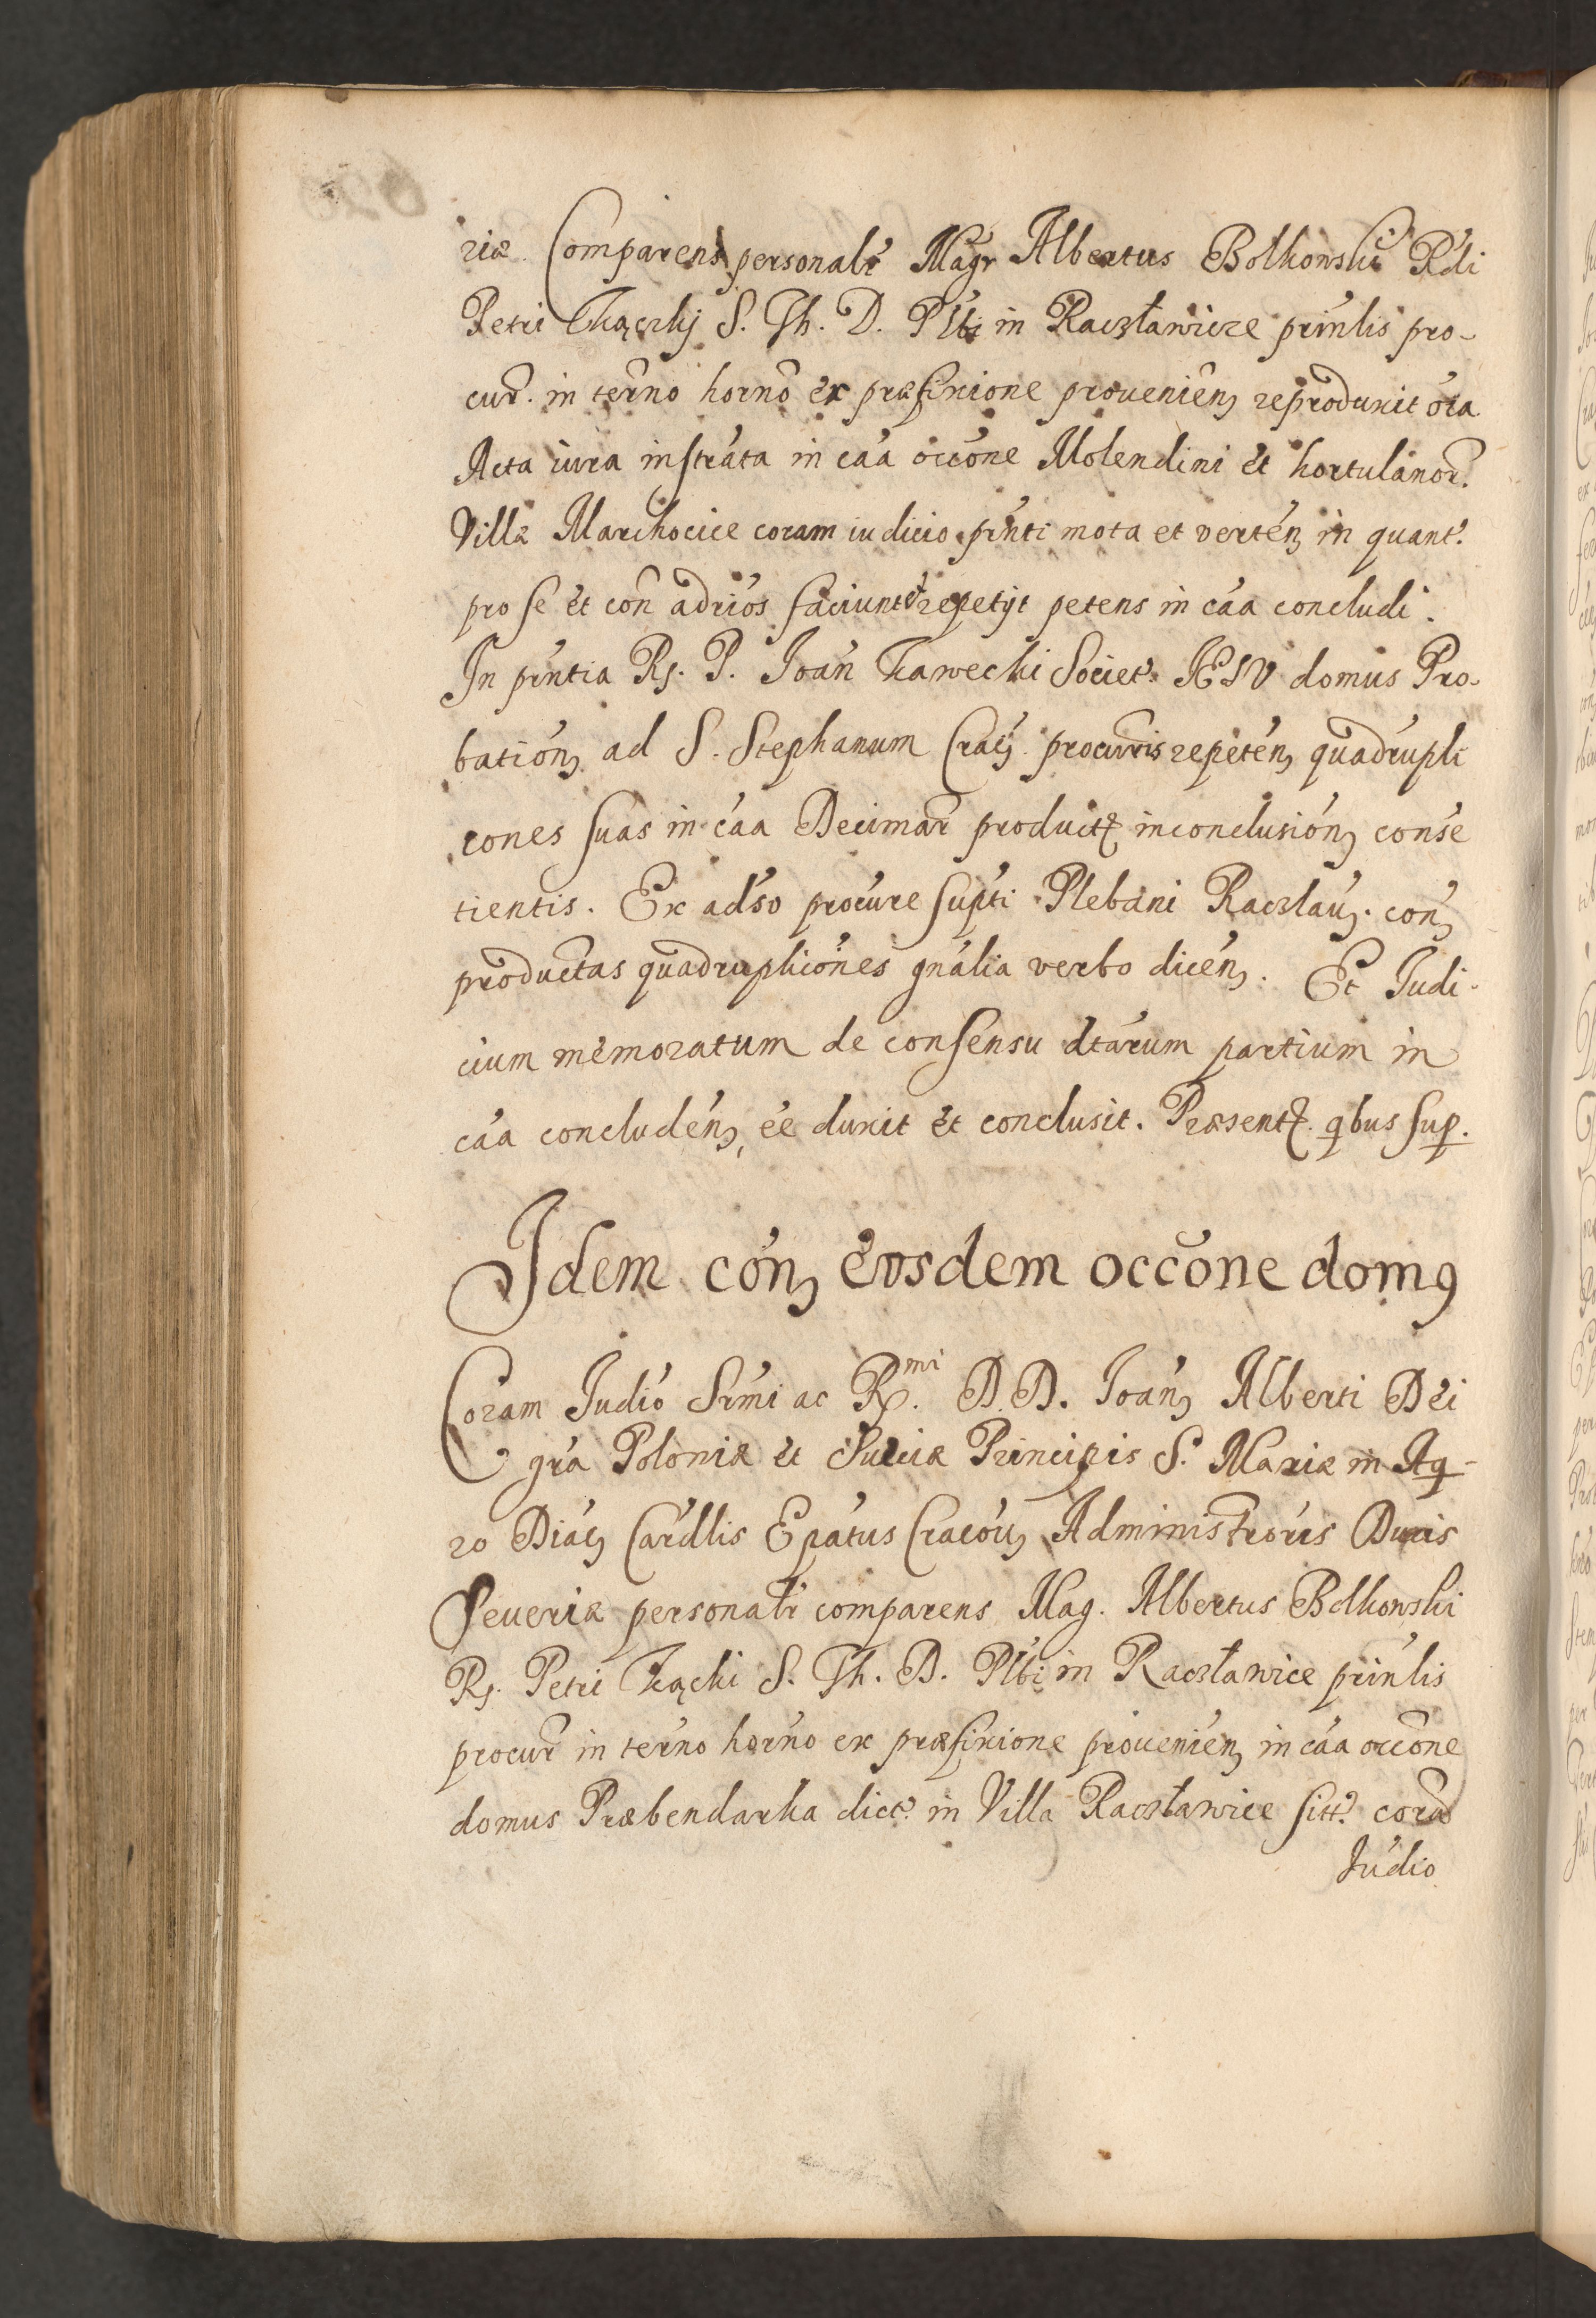 riæ. Comparens personalr Magr Albertus Bolkowski Rdi
Petri Tkączkj S. Th. D. Plbi in Raczławicze prinlis pro-
cur. in terno horno ex præfixione provenien, reproduxit oia
Acta iura instrata in caa occone Molendini et hortulanor.
Villæ Marchocice coram iudicio pnti mota et verten, in quant.
pro se et con adrios faciunt repetyt petens in caa concludi.
In pntia Rs. P. Ioan Kawecki Societ. IESV domus Pro-
bation, ad S. Stephanum Crac. procuris repeten, quadrupli
cones suas in caa Decimar product inconclusion, conse
tientis. Ex adso procure supti Plebani Raczlau. con,
productas quadruplicones gnalia verbo dicen,. Et Iudi-
cium memoratum de consensu dtarum partium in
caa concluden, ee duxit et conclusit. Præsent. qbus sup.
Idem con, eosdem occone domꝯ
Coram Iudio Srmi ac R.mi D.D. Ioan, Alberti Dei
gra Poloniæ et Sueciæ Principis S. Mariæ in Aq-
ro Diac, Cardlis Epatus Cracou, Administroris Ducis
Seueriæ personalr comparens Mag. Albertus Bolkowski
Rs. Petri Tkącki S. Th. D. Plbi in Raczławice prinlis
procur in terno horno ex præfixione prouenien, in caa occone
domus Præbendarka dict. in Villa Raczławice sitt. cora
Iudio